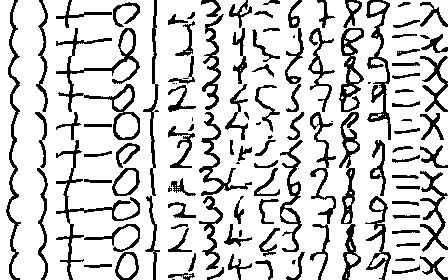 ( ) + - 0 1 2 3 4 5 6 7 8 9 = X
( ) + - 0 1 2 3 4 5 6 7 8 9 = X
( ) + - 0 1 2 3 4 5 6 7 8 9 = X
( ) + - 0 1 2 3 4 5 6 7 8 9 = X
( ) + - 0 1 2 3 4 5 6 7 8 9 = X
( ) + - 0 1 2 3 4 5 6 7 8 9 = X
( ) + - 0 1 3 4 5 6 7 8 9 = X
( ) + - 0 1 2 3 4 5 6 7 8 9 = X
( ) + - 0 1 2 3 4 5 6 7 8 9 = X
( ) + - 0 1 2 3 4 5 6 7 8 9 = X